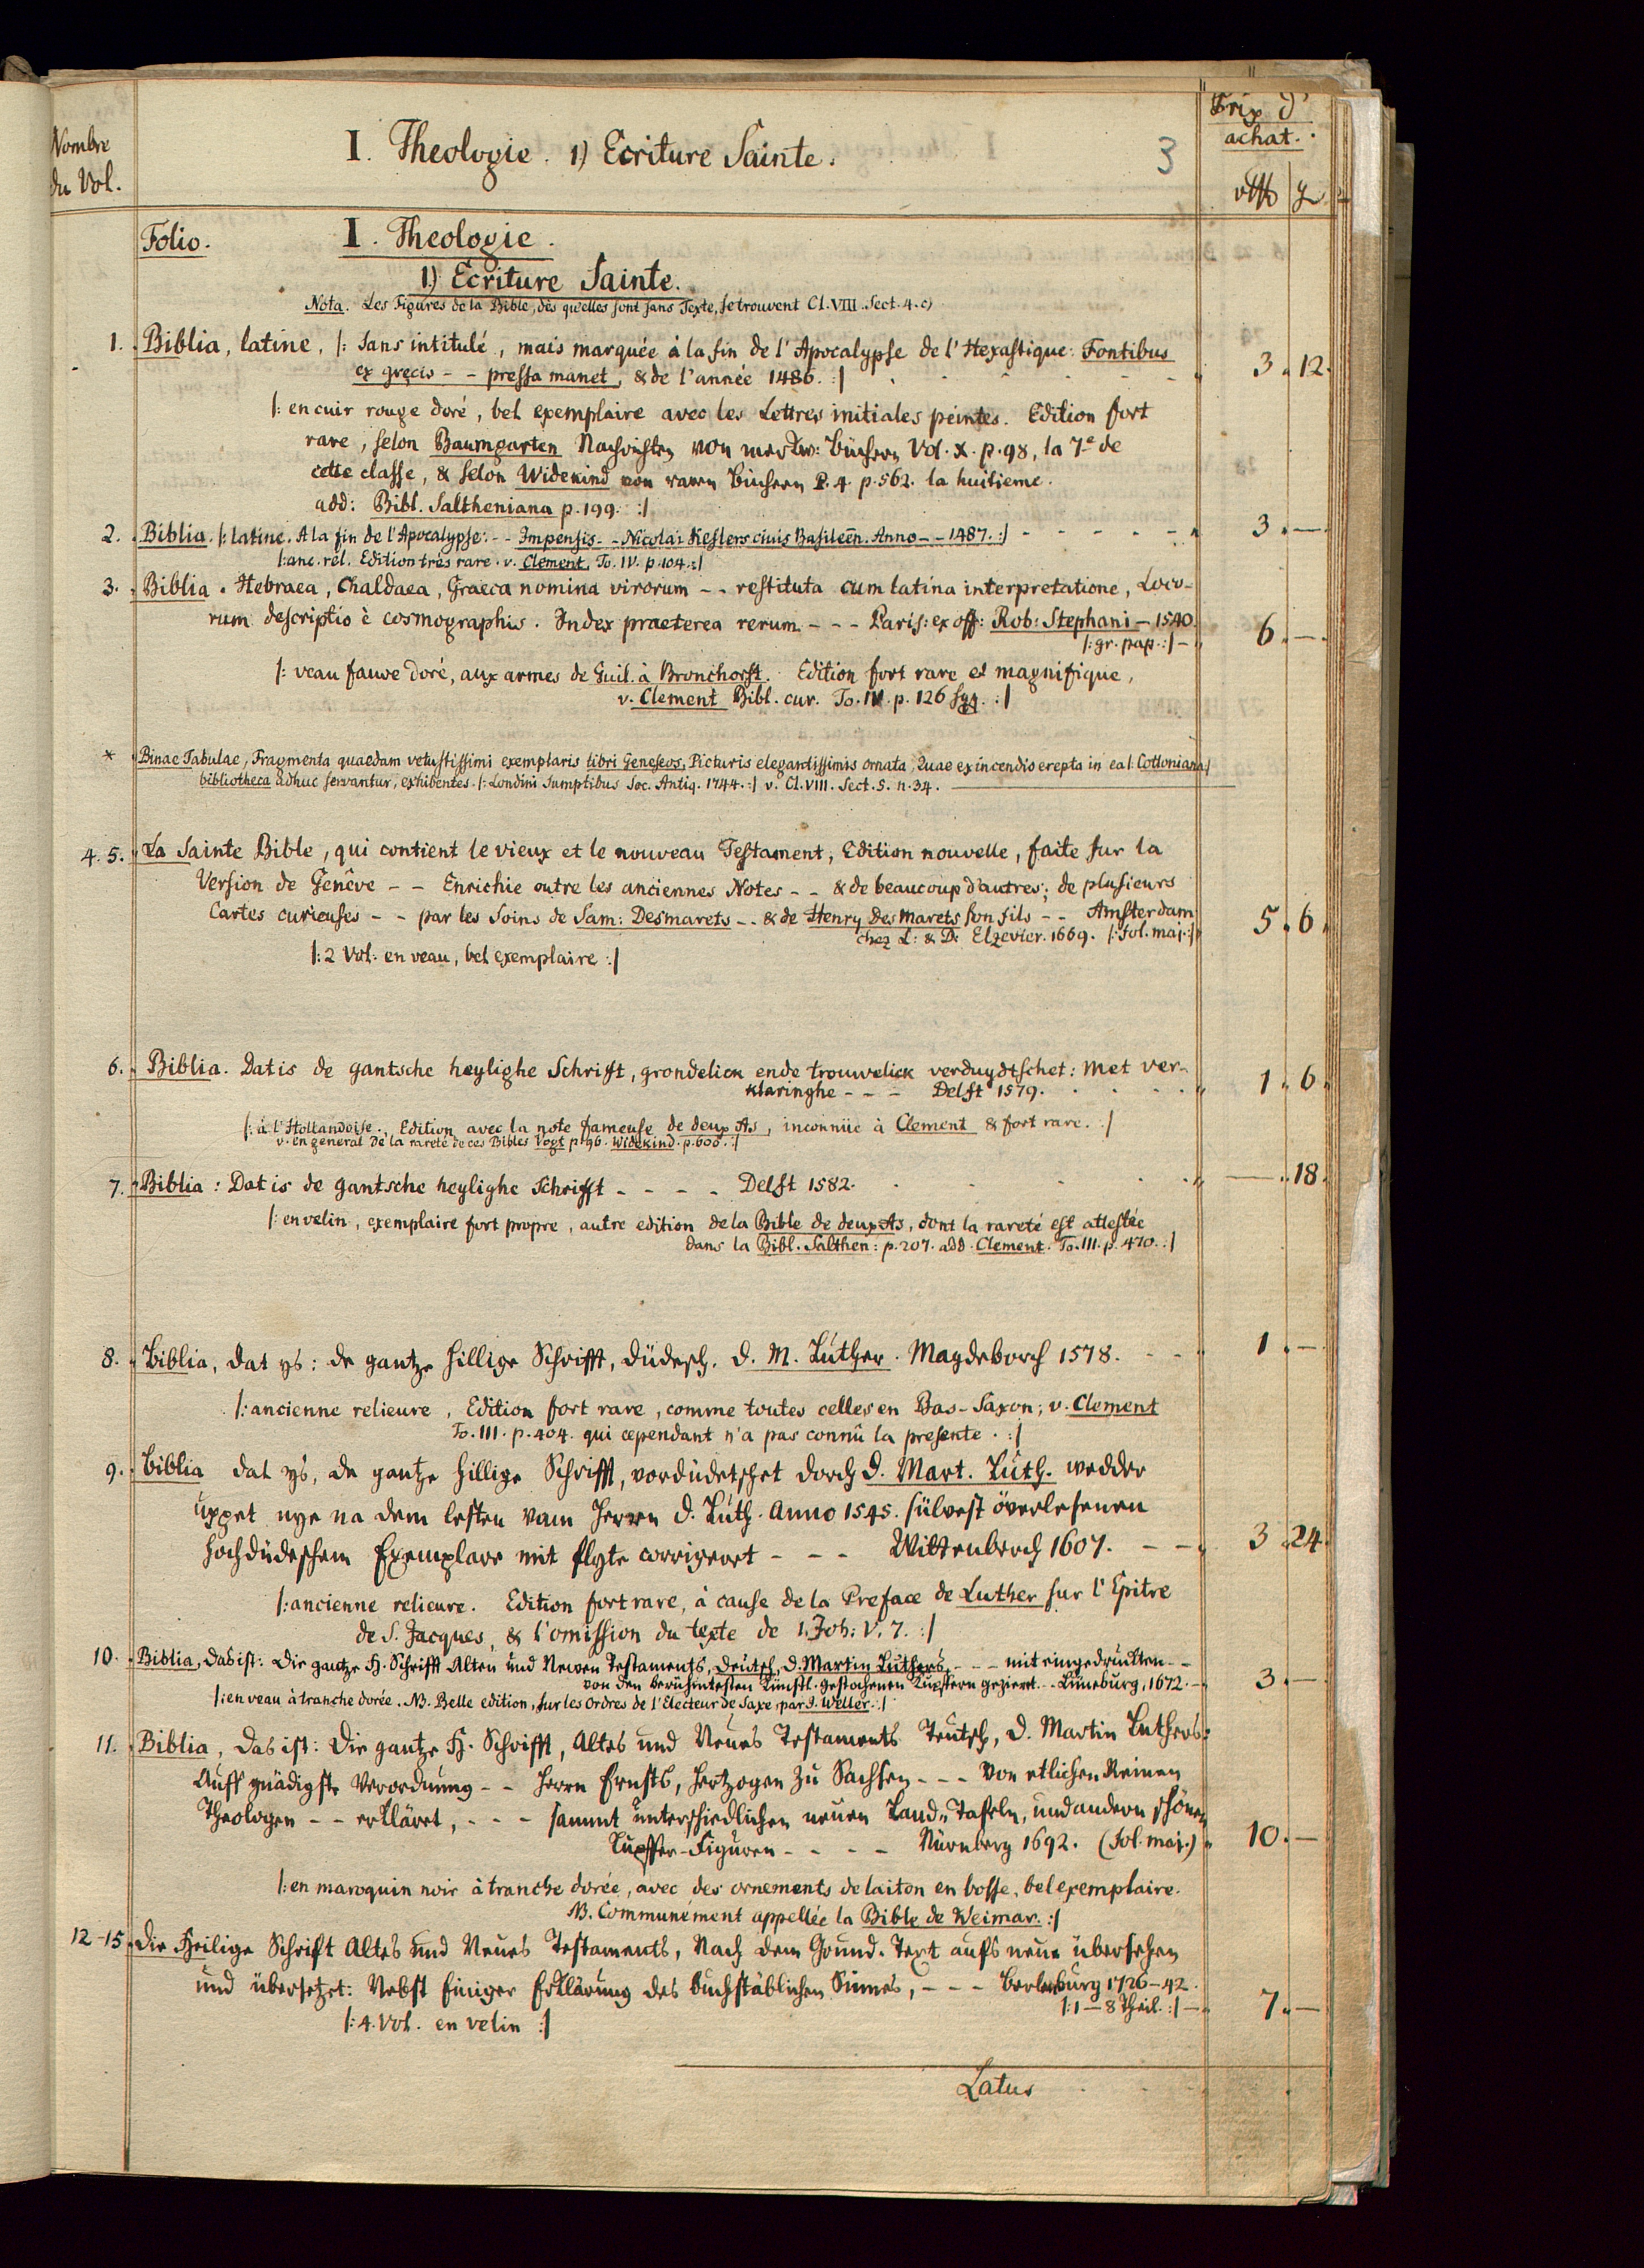 Nombre
du Vol.
I. Theologie. 1) Ecriture Sainte.
3
Prix d'
achat.
Folio.
I. Theologie.
1) Ecriture Sainte.
Nota. Les Figures de la Bible, dès qu'elles sont sans Texte, se trouvent Cl. VIII. Sect. 4. c)
1. Biblia, latine, |: sans intitulé, mais marquée à la fin de l'Apocalypse de l'Hexastique: Fontibus
ex grecis - - pressa manet, & de l'année 1486. :| 3. 12.
|: en cuir rouge doré, bel exemplaire avec les Lettres initiales peintes. Edition fort
rare, selon Baumgarten Nachrichten von merkw: Büchern Vol. X. p. 98, la 7e de
cette classe, & selon Widekind von raren Büchern P. 4. p. 562. la huitieme.
add: Bibl. Saltheniana p. 199. :|
2. Biblia. |: latine. A la fin de l'Apocalypse: - - Impensis - - Nicolai Keslers civis Basileēn. Anno - - 1487. :| - - - - - 3. —
|: anc. rél. Edition très rare. v. Clement, To. IV. p. 104. :|
3. Biblia. Hebraea, Chaldaea, Graeca nomina virorum - - restituta cum latina interpretatione, Loco-
rum descriptio è cosmographis. Index praeterea rerum - - - Paris: ex off: Rob: Stephani - 1540.
|: gr. pap. :| - 6. —
|: veau fauve doré, aux armes de Guil. à Bronchorst. Edition fort rare et magnifique,
v. Clement Bibl. cur. To. IV. p. 126 sqq. :|
* Binae Tabulae, Fragmenta quaedam vetustissimi exemplaris libri Geneseos, Picturis elegantissimis ornata, Quae ex incendio erepta in ea |: Cottoniana :|
bibliotheca adhuc servantur, exhibentes. |: Londini Sumptibus Soc. Antiq. 1744. :| v. Cl. VIII. Sect. 5. n. 34.
4. 5. La Sainte Bible, qui contient le vieux et le nouveau Testament, Edition nouvelle, faite sur la
Version de Genêve - - Enrichie outre les anciennes Notes - - & de beaucoup d'autres; de plusieurs
Cartes curieuses - - par les Soins de Sam: Desmarets - - & de Henry Des Marets son fils - - Amsterdam
chez L: & D: Elzevier. 1669. |: Fol. maj. :| 5. 6.
|: 2 Vol. en veau, bel exemplaire :|
6. Biblia. Dat is de gantsche heylighe Schrift, grondelick ende trouwelick verduydtschet: Met ver-
klaringhe - - - Delft 1579. 1. 6.
|: à l'Hollandoise. Edition avec la note fameuse de deux As, inconnüe à Clement & fort rare. :|
v. en general de la rareté de ces Bibles Vogt p. 96. Widekind. p. 600. :|
7. Biblia: Dat is de gantsche heylighe Schrifft - - - - Delft 1582. —. 18.
|: en velin, exemplaire fort propre, autre edition de la Bible de deux As, dont la rareté est attestée
dans la Bibl. Salthen: p. 207. add. Clement. To. III. p. 470. :|
8. Biblia, dat ys: de gantze hillige Schrifft, düdesch. D. M. Luther. Magdeborch 1578. - - 1. —
|: ancienne relieure, Edition fort rare, comme toutes celles en Bas-Saxon; v. Clement
To. III. p. 404. qui cependant n'a pas connû la presente. :|
9. Biblia dat ys, de gantze hillige Schrifft, vordüdetschet dorch D. Mart. Luth. wedder
uppet nye na dem lesten vam Herren D. Luth. Anno 1545. sülvest överlesenen
hochdüdeschem Exemplare mit flyte corrigeert - - - Wittenberch 1607. - - 3. 24.
|: ancienne relieure. Edition fort rare, à cause de la Preface de Luther sur l'Epitre
de S. Jacques, & l'omission du texte de 1. Joh: V. 7. :|
10. Biblia, das ist: Die gantze H. Schrifft Alten und Newen Testaments, Deutsch, D. Martin Luthers, - - - mit eingedruckten - -
von den berühmtesten Künstl. gestochenen Kupfern gezieret. - - Lüneburg, 1672. - 3. —
|: en veau à tranche dorée. NB. Belle edition, sur les Ordres de l'Electeur de Saxe, par J. Weller. :|
11. Biblia, Das ist: Die gantze H. Schrifft, Altes und Neues Testaments Teutsch, D. Martin Luthers:
Auff gnädigste Verordnung - - Herrn Ernsts, Hertzogen zu Sachsen - - - Von etlichen Reinen
Theologen - - erkläret, - - - sammt unterschiedlichen neuen Land-Tafeln, und andern schönen
Kupffer-Figuren - - - - Nürnberg 1692. (Fol. maj.) 10. —
|: en maroquin noir à tranche dorée, avec des ornements de laiton en bosse, bel exemplaire.
NB. Communément appellée la Bible de Weimar. :|
12-15 Die Heilige Schrift Altes und Neues Testaments, Nach dem Grund-Text aufs neue übersehen
und übersetzet: Nebst Einiger Erklärung des buchstäblichen Sinnes, - - - Berleburg 1726-42.
|: 1 - 8 Theil. :| - 7. —
|: 4. Vol. en velin :|
Latus